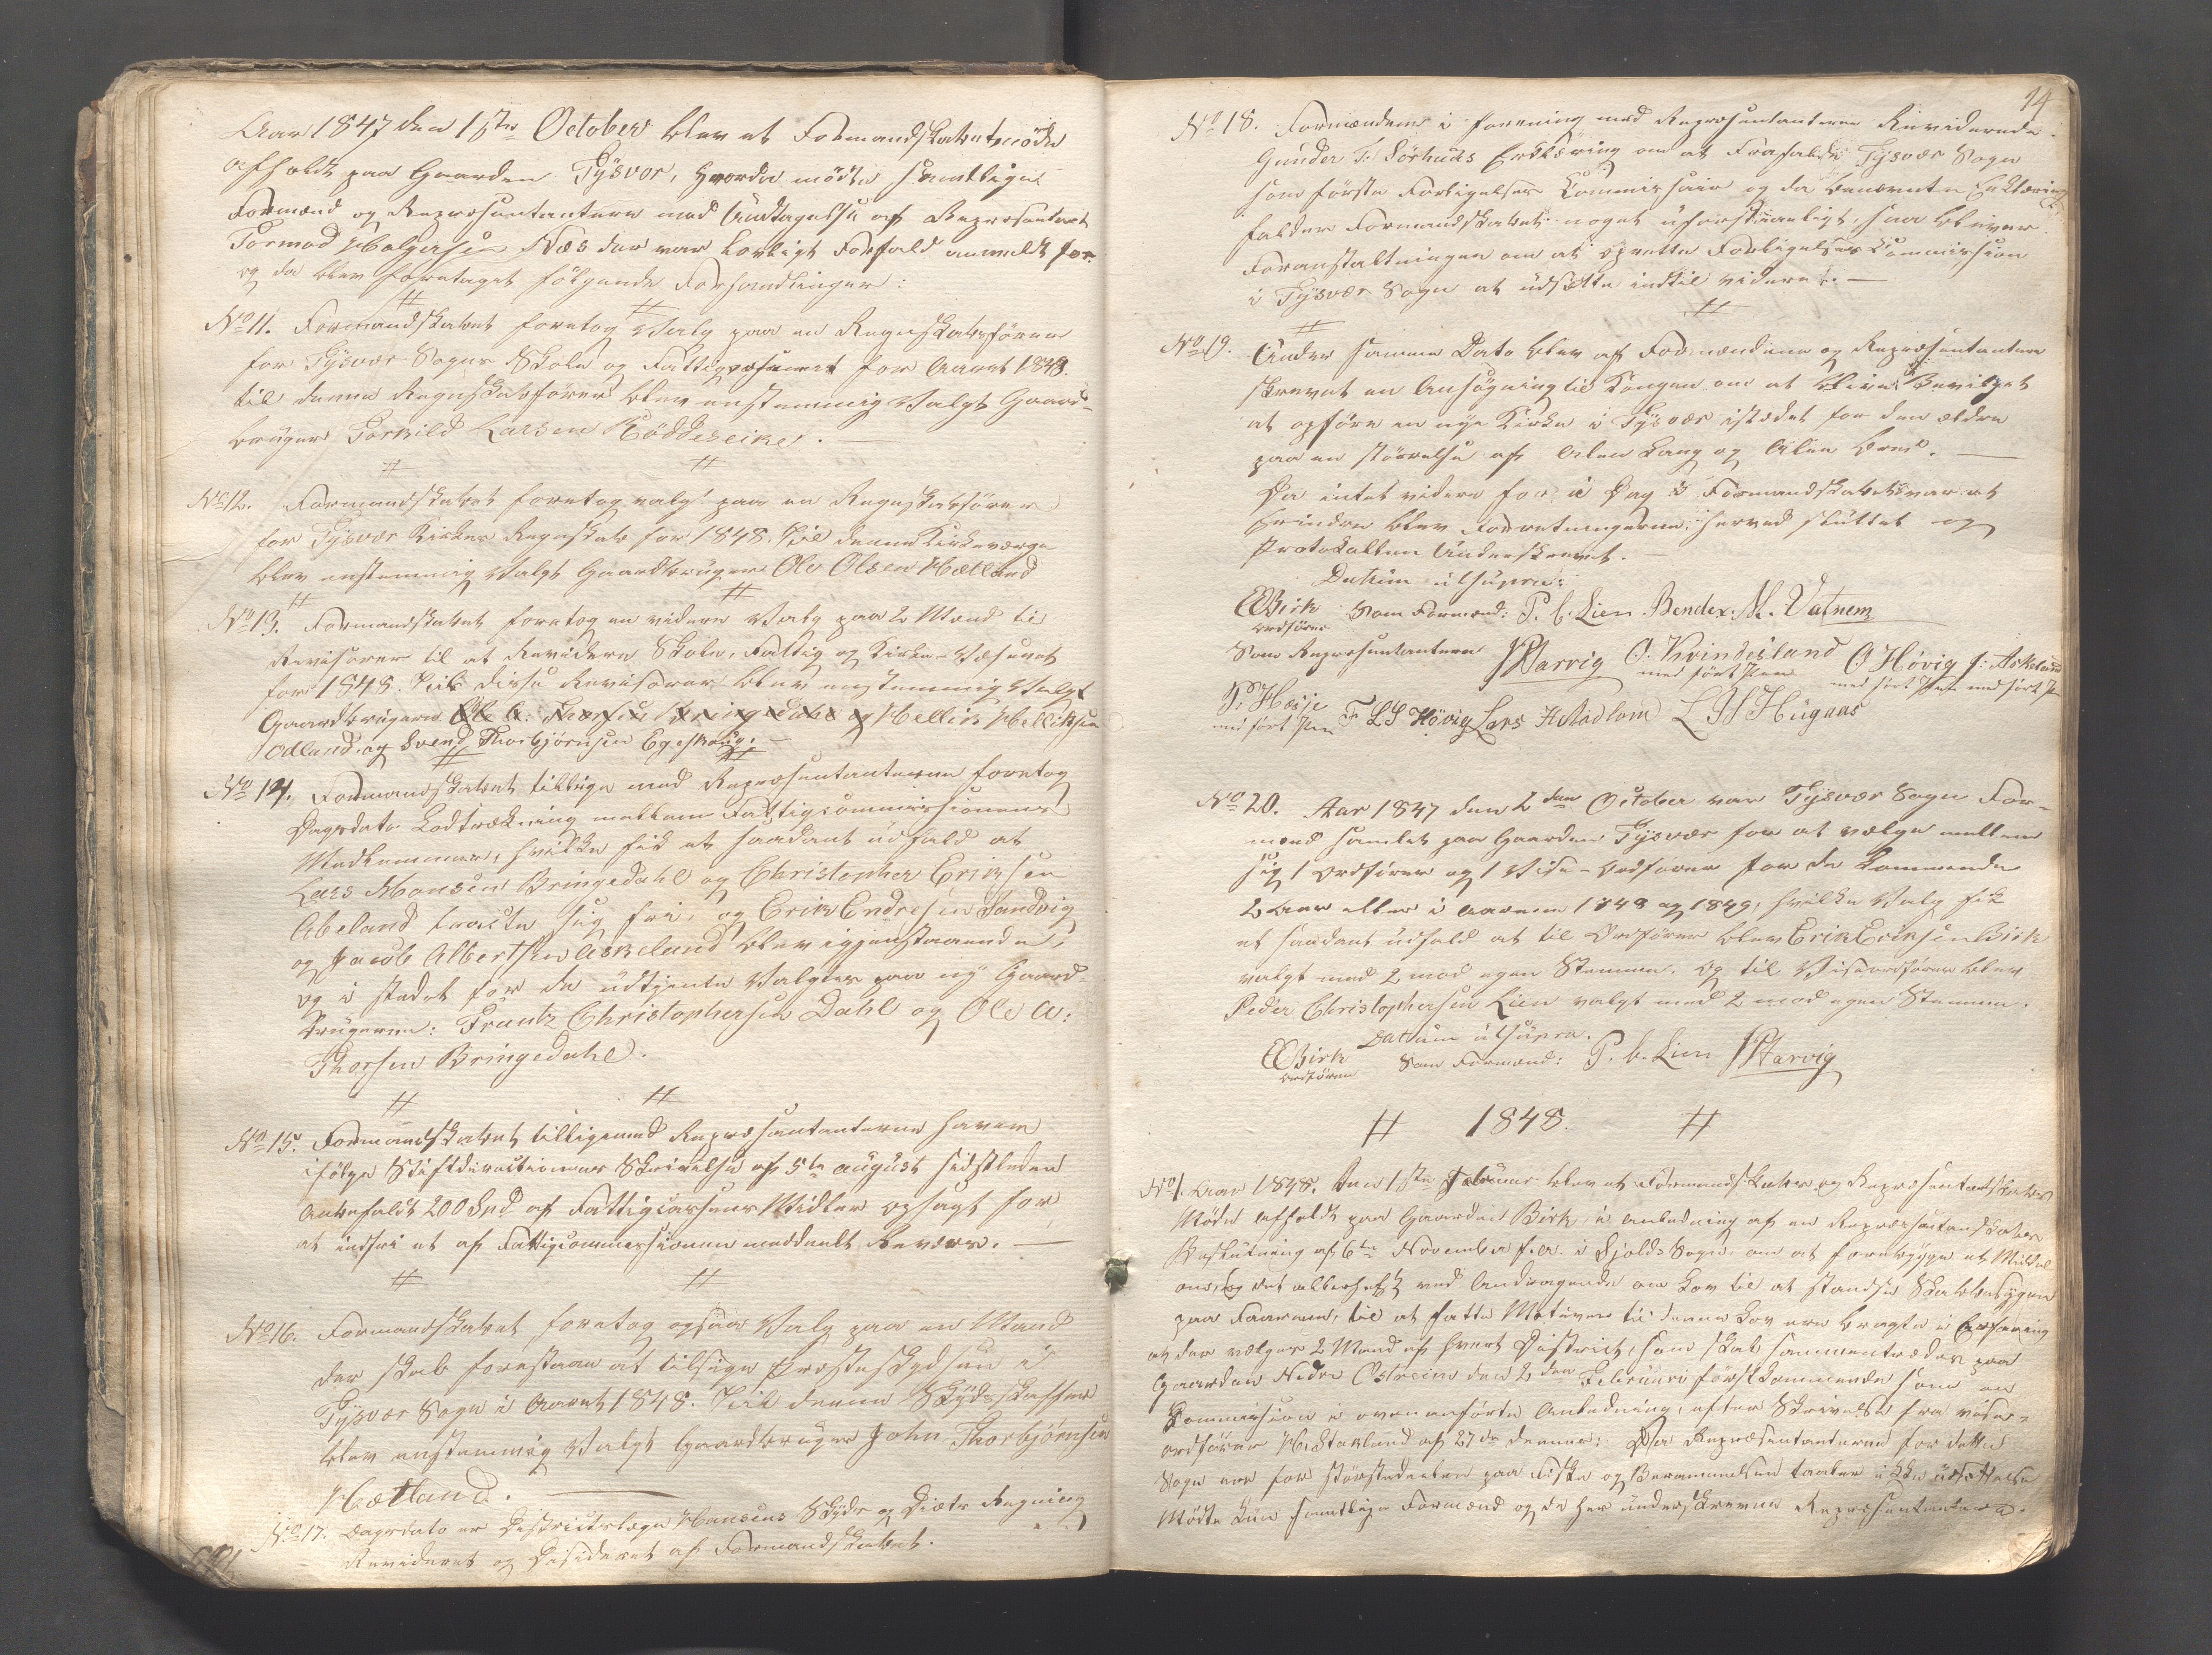 Aar 1847 den 1ste October blev et Formandskabetsmöde
afholdt paa Gaarden Tÿsvor, hvorda mödte samtlige
Formænd og Repræsentantere med Undtagelse af Repræsentant
Tormod Holgersen Næs der var lovligt Forfald anmeldt for
og da blev foretaget fölgende Forhandlinger:
No 11. Formandskabet foretog Valg paa en Regnskabsförer
for Tÿsvær Sogns Skole og Fattigvæsenet for Aaret 1848.
til denne Regnskabsförer blev enstemmig Valgt Gaard-
brüger Torkild Larsen Röddeseike.
No 12. Formandskabet foretog valg paa en Regnskabsförer
for Tÿsvær Kirkes Regnskab for 1848. Til denne Kirkeværge
blev enstemmig Valgt Gaardbrüger Ole Olsen Hetland
No 13. Formandskabet foretog en videre Valg paa 2 Mænd til
Revisorer til at Revidere Skole, Fattig og Kirke-Væsenet
for 1848. Til disse Revisorer blev enstemmig Valgt
Gaardbrügern Ole A. Thorsen Bringedahl og Hellik Helliksen
Odland og Svend Thorbjörnsen Egeskoug.
No 14. Formandskabet tillige med Repræsentanterne foretog
Dagsdato Lodtrækning mellem Fattigcommissionens
Medlemmer, hvilke fik et saadant udfald at
Lars Monsen Bringedahl og Christopher Eriksen
Abeland trakte sig fri, og Erik Endresen Sandvig
og Jacob Albertsen Askeland blev igjenstaaende,
og i stedet for de udtjente Valgtes paa nÿ Gaard-
brügerne: Frantz Christophersen Dahl og Ole A:
Thorsen Bringedahl.
No 15. Formandskabet tilligemed Repræsentanterne haver
ifölge Stiftdirectionens Skrivelse af 5te august sidstleden
Anbefaldt 200 Spd af Fattigcassens Midler opsagt for
at indfri et af Fattigcommissionen meddeelt Bevis.
No 16. Formandskabet foretog ogsaa Valg paa en Mand
der skal forestaae at tilsige Presteskydsen i
Tÿsvær Sogn i Aaret 1848. Til denne Skÿdsskaffer
blev enstemmig Valgt Gaardbrüger John Thorbjörnsen
Hetland.
No 17. Dagsdato er Districtslæge Hansens Skÿds og Diæts Regning
Revideret og Desideret af Formandskabet.
14
No 18. Formændene i forening med Repræsentanterne Reviderede
Gunder T. Sörhuus Erklæring om at Frafalde Tÿsvær Sogn
som förste Forligelses Commissair og da benævnte Erklæring
falder Formandskabet noget uforstaaeligt, saa bliver
Foranstaltningen om at oprette Forligelses Commission
i Tÿsvær Sogn at udsætte indtil videre.
No 19. Under samme Dato blev af Formændene og Repræsentantere
skrevet en Ansögning til Kongen om at blive Bevilget
at opföre en nye Kirke i Tÿsvær istedet for den ældre
paa en störrelse af Alen Lang og Alen bred.
Da intet videre for i Dag i Formandskabet var at
Erindre blev Forretningerne herved sluttet og
Protokollen Underskrevet.
Datum utsupra:
EEBirk Som Formænd: P. C. Lien Bendex. M. Vatnem
ordförer
Som Repræsentantere JHarvig O. Kvindesland O Hövig J: Askeland
med fört Pen med fört Pen med fört P
P. Hæsje F LS Hövig Lars H Midlom L H Hügaas
med fört Pen
No 20. Aar 1847 den 2den October var Tÿsvær Sogns For-
mænd samlet paa Gaarden Tÿsvær for at vælge mellem
sig 1 Ordförer og 1 Vise-Ordförer for de kommende
2 Aar eller i Aarene 1848 og 1849, hvilke Valg fik
et saadant udfald at til Ordförer blev Erik Eriksen Birk
valgt med 2 mod egen Stemme. Og til Viseordförer blev
Peder Christophersen Lien valgt med 2 mod egen Stemme.
Datum utsupra.
EEBirk Som Formænd: P. C. Lien JHarvig
ordförer
1848.
No 1. Aar 1848. den 1ste Februar blev et Formandskabs og Repræsentantskabs
Möde afholdt paa Gaarden Birk, i anledning af en Repræsentantskabers
Beslutning af 6te November f. A. i Skjolds Sogn om at forebygge et Middel
om, og det allerhelst ved Andragende om Lov til at standse Skabbesygen
paa Faarene, til at fatte Motiver til denne Lov ere bragte i Erfaring
at der vælges 2 Mænd af hvert District, som skal sammentræde paa
Gaarden Nedre Østreim den 2den Februari förstkommende som en
Commission i ovenanförte Anledning, efter Skrivelse fra vise-
ordförer H. Stakland af 27de dennes: Da Repræsentanterne for dette
Sogn ere for störstedeelen paa Fiske og Beramelsen taaler ikke udsættelse
Mödte kun samtlige Formænd og de her underskrevne Repræsentantere.